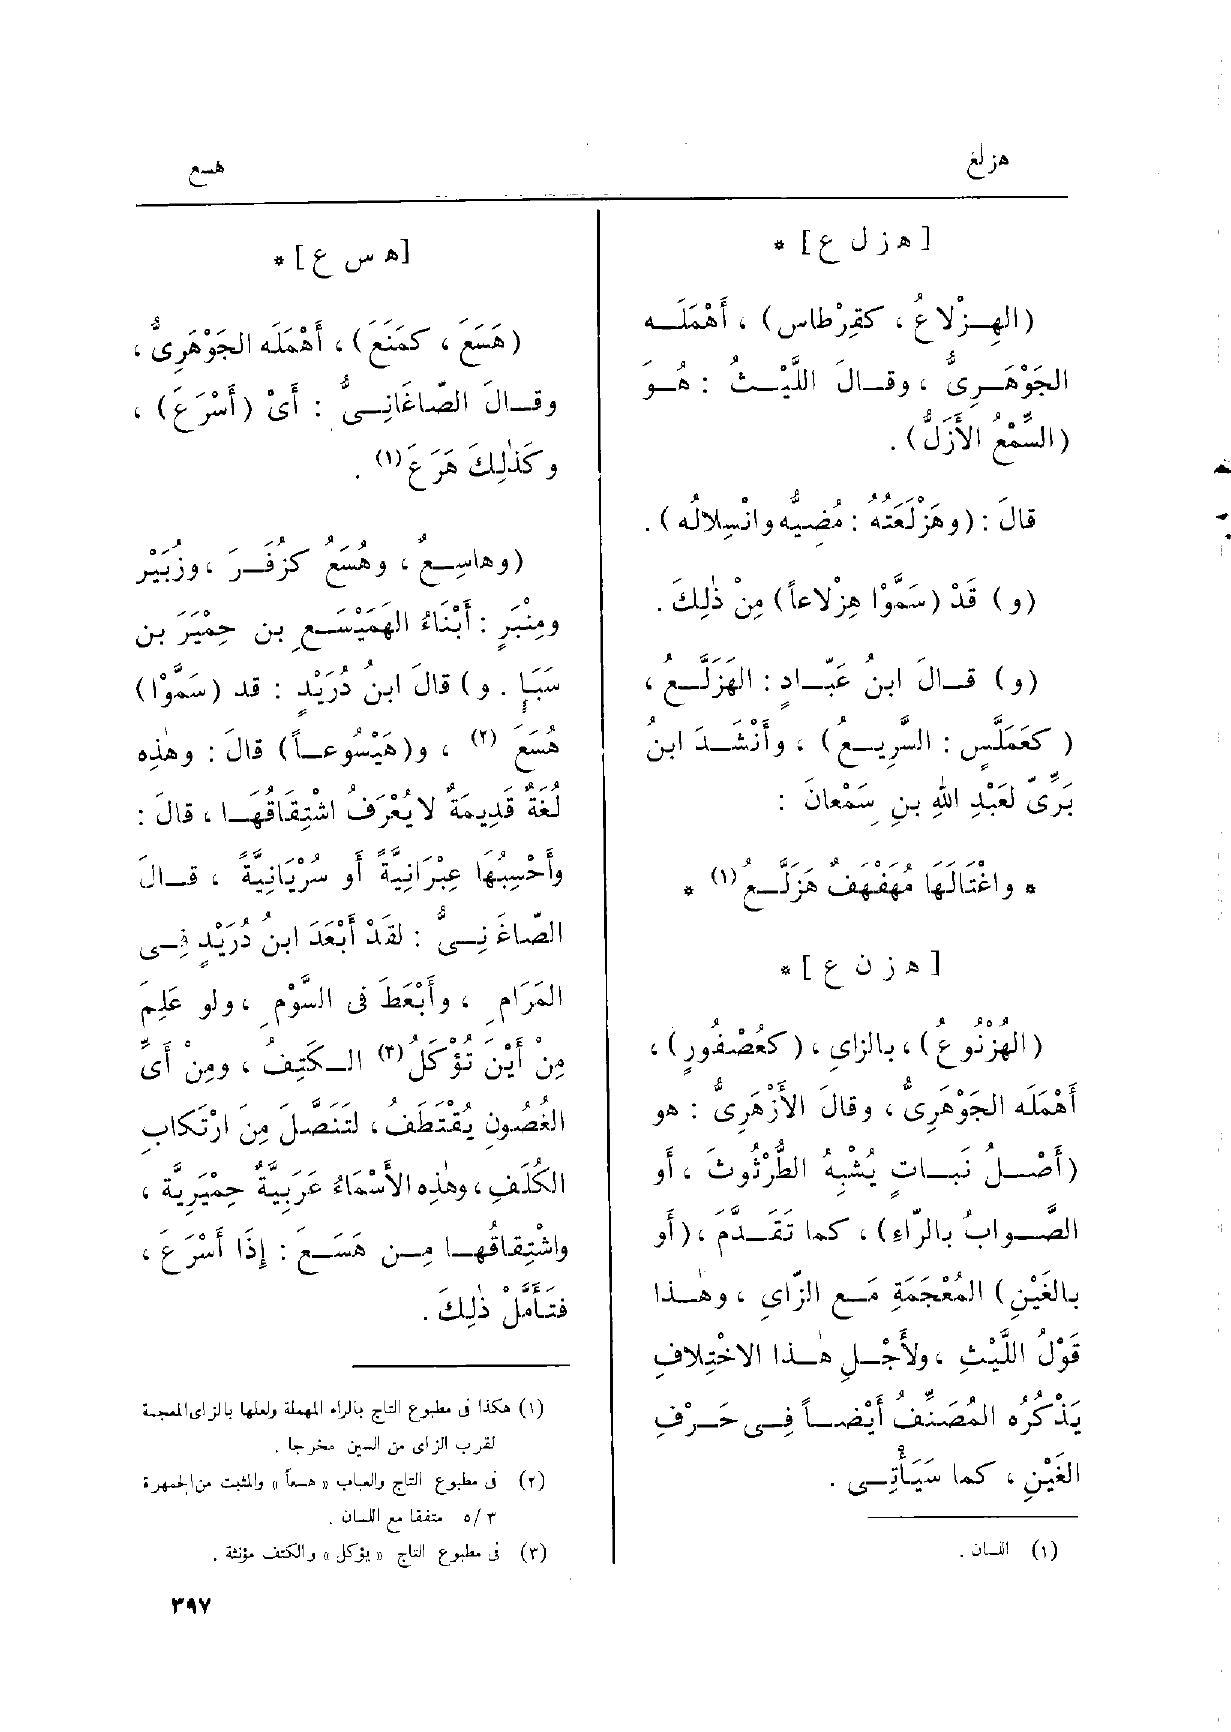 هزلغ
هسع
[ ه ز ل ع ] *
(الهِـزْلاعُ ، كقِرْطاس) ، أَهْمَلَــه
الجَوْهَــرِىُّ ، وقــالَ اللَّيْــثُ : هُــوَ
(السِّمْعُ الأَزَلُّ) .
قالَ : (وهَزْلَعَتُهُ : مُضِيُّه وانْسِلالُه) .
(و) قَدْ (سَمَّوْا هِزْلاعاً) مِنْ ذٰلِكَ .
(و) قــالَ ابنُ عَبّــادٍ : الهَزَلَّــعُ ،
( كعَمَلَّسٍ : السَّرِيــعُ) ، وأَنْشَــدَ ابنُ
بَرِّىّ لعَبْدِ اللهِ بنِ سَمْعانَ :
* واغْتالَها مُهَفْهَفٌ هَزَلَّــعُ (١) *
[ ه ز ن ع ] *
(الهُزْنُوعُ) ، بالزاىِ ، (كعُصْفُورٍ) ،
أَهْمَلَه الجَوْهَرِىُّ ، وقالَ الأَزْهَرِىُّ : هو
(أَصْــلُ نَبــاتٍ يُشْبِهُ الطُّرْثُوثَ ، أَو
الصَّــوابُ بالرّاءِ) ، كما تَقَــدَّمَ ، (أَو
بالغَيْنِ) المُعْجَمَةِ مَــع الزّاىِ ، وهــٰذا
قَوْلُ اللَّيْثِ ، ولأَجْــلِ هــٰذا الاخْتِلافِ
يَذْكُرُه المُصَنِّفُ أَيْضــاً فِــى حَــرْفِ
الغَيْنِ ، كما سَيَأْتِــى .
(١) اللسان .
[ه س ع ] *
(هَسَعَ ، كمَنَعَ) ، أَهْمَلَه الجَوْهَرِىُّ ،
وقــالَ الصّاغانِــىُّ : أَىْ (أَسْرَعَ) ،
وكَذٰلِكَ هَرَعَ (١) .
(وهاسِــعٌ ، وهُسَعُ كزُفَــرَ ، وزُبَيْرٍ
ومِنْبَرٍ : أَبْنَاءُ الهَمَيْسَــعِ بن حِمْيَرَ بن
سَبَــإٍ . و) قالَ ابنُ دُرَيْدٍ : قد (سَمَّوْا)
هُسَعَ (٢) ، و(هَيْسُوعــاً) قالَ : وهٰذِه
لُغَةٌ قَدِيمَةٌ لا يُعْرَفُ اشْتِقَاقُهــا ، قالَ :
وأَحْسِبُهَا عِبْرَانِيَّةً أَو سُرْيَانِيَّةً ، قــالَ
الصّاغَانِــىُّ : لقَدْ أَبْعَدَ ابنُ دُرَيْدٍ فِــى
المَرَامِ ، وأَبْعَطَ فى السَّوْمِ ، ولو عَلِمَ
مِنْ أَيْنَ تُؤْكَلُ (٣) الــكَتِفُ ، ومِنْ أَىِّ
الغُصُونِ يُقْتَطَفُ ، لتَنَصَّلَ مِنَ ارْتِكابِ
الكُلَفِ ، وهٰذِه الأَسْمَاءُ عَرَبِيَّةٌ حِمْيَرِيَّة ،
واشْتِقَاقُهــا مِــن هَسَــعَ : إِذَا أَسْرَعَ ،
فتَأَمَّلْ ذٰلِكَ .
(١) هكذا فى مطبوع التاج بالراء المهملة ولعلها بالزاى المعجمة
لقرب الزاى من السين مخرجا .
(٢) فى مطبوع التاج والعباب « هسعاً » والمثبت من الجمهرة
٣ / ٥ متفقا مع اللسان .
(٣) فى مطبوع التاج « يؤكل » والكتف مؤنثة .
٣٩٧